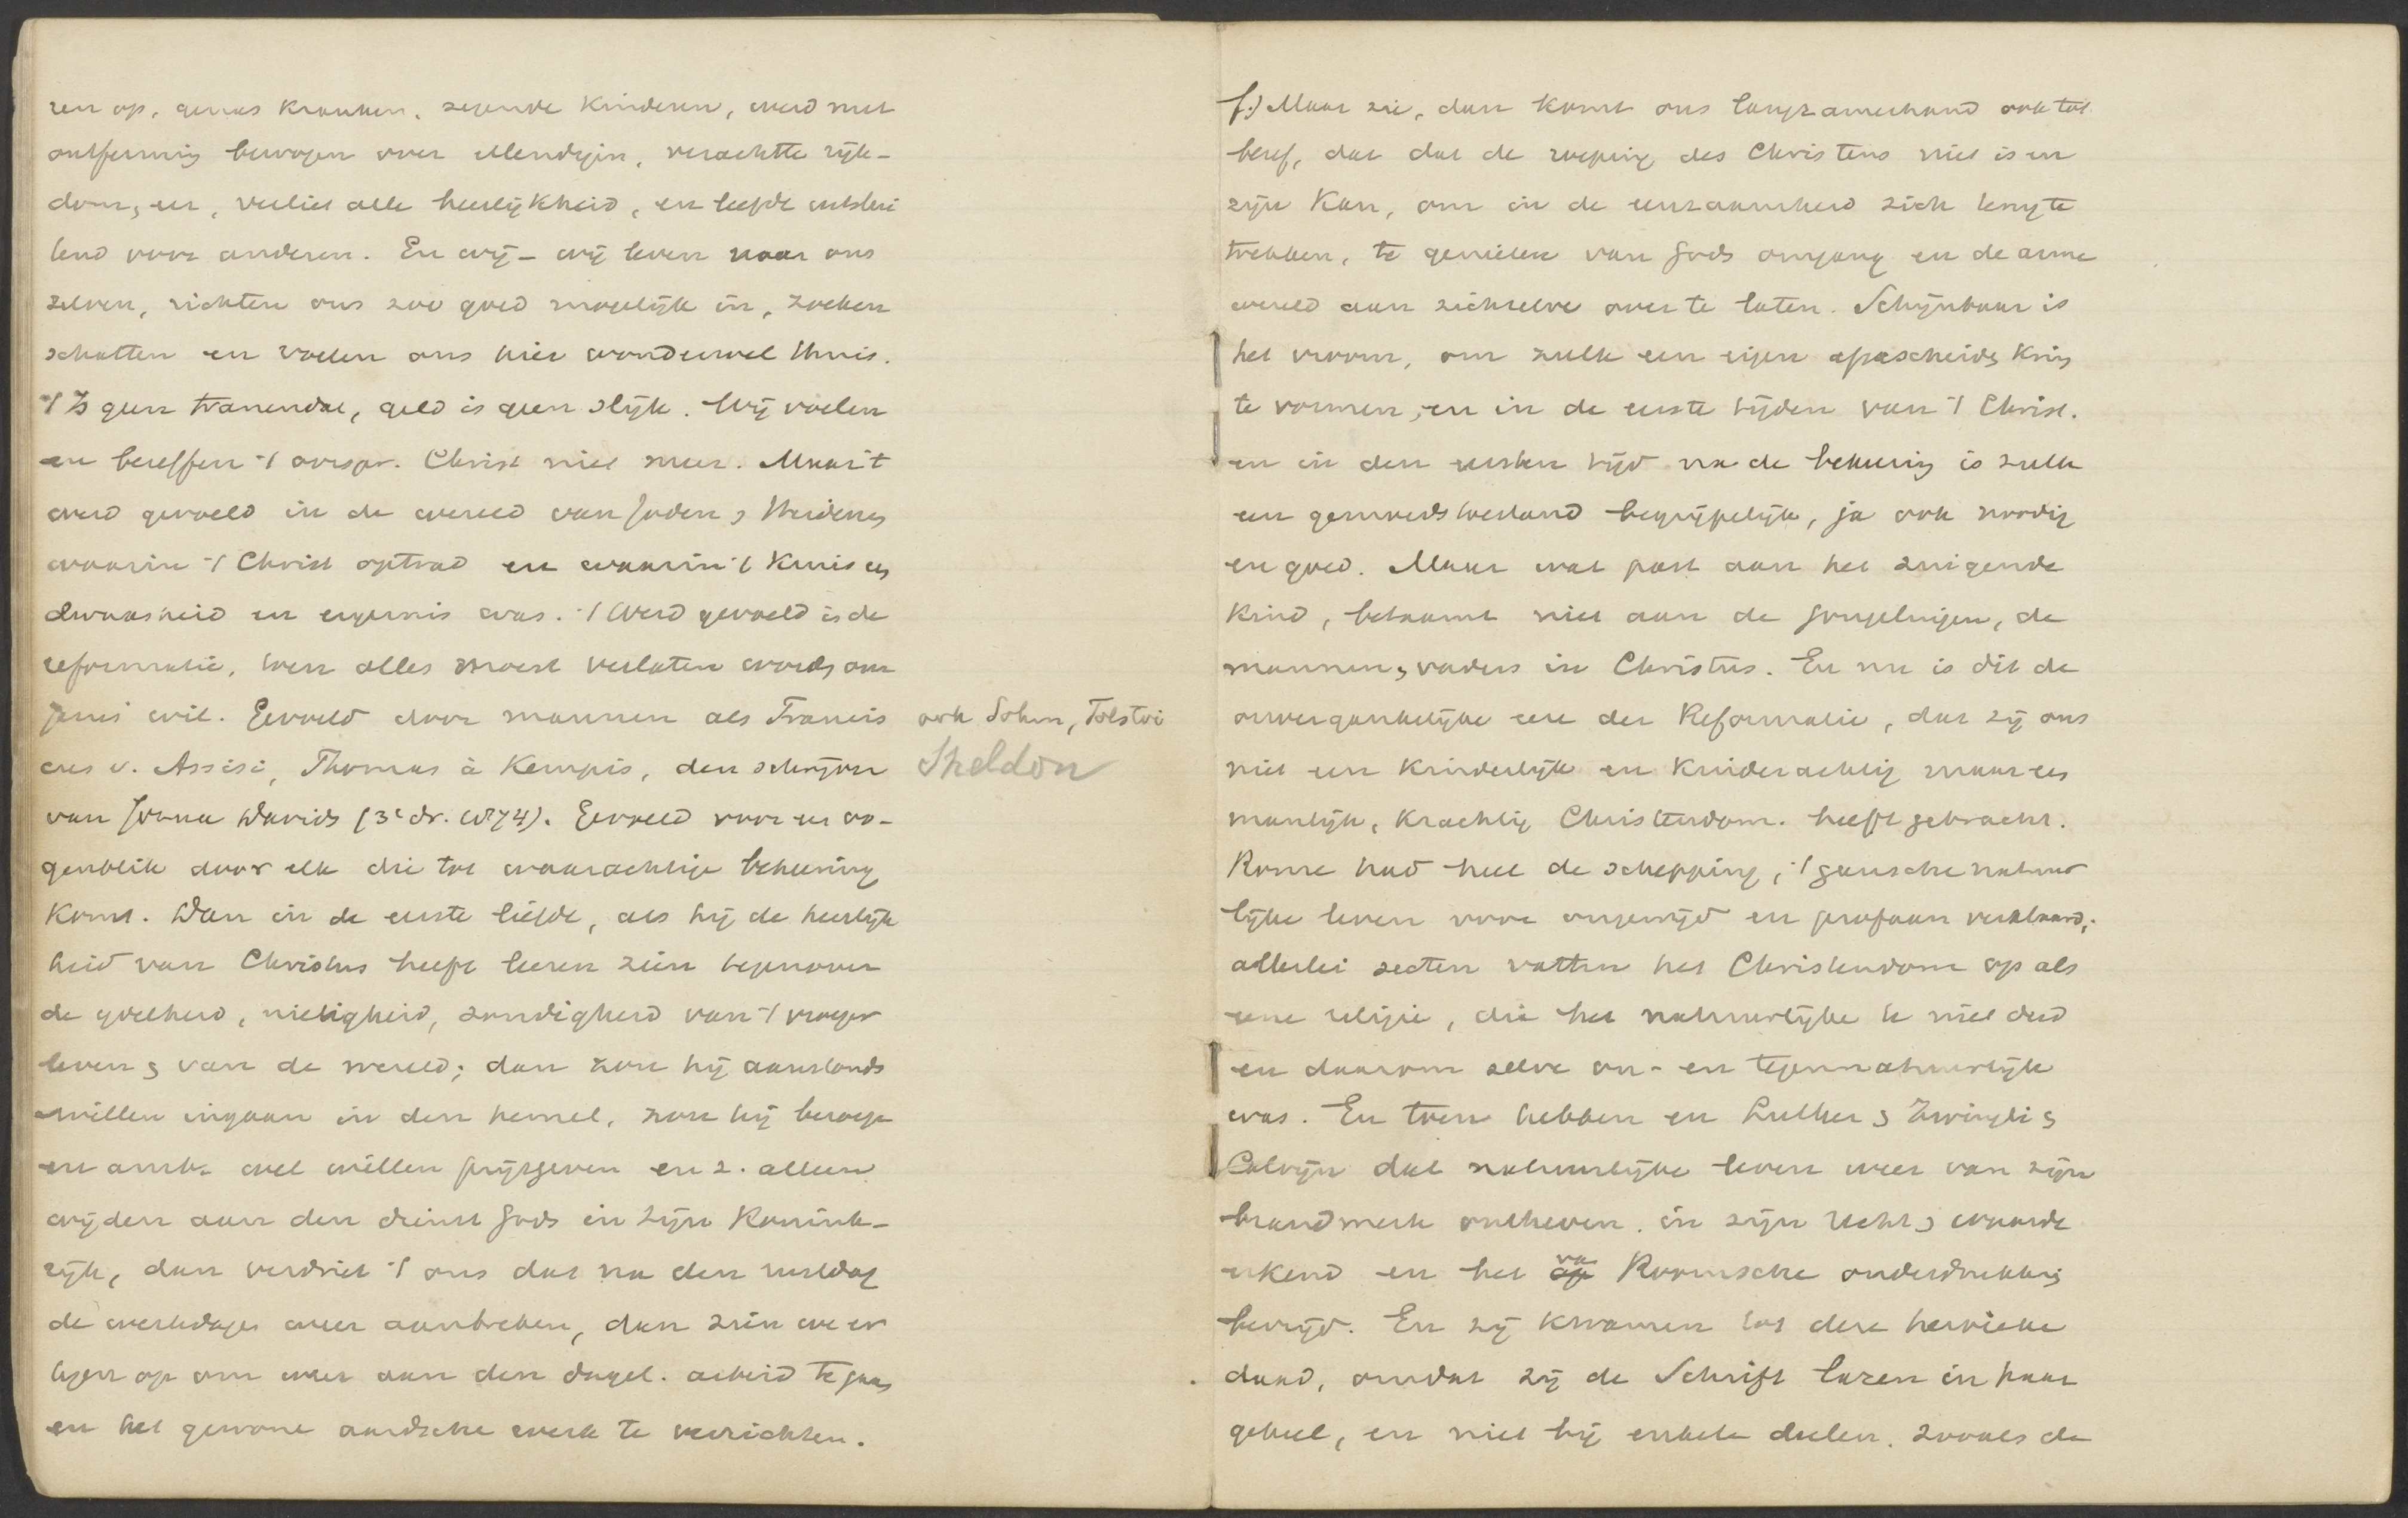 ren op, genas kranken, zegende kinderen, werd met
ontferming bewogen over ellendigen, verachtte rijk-
dom, en, verliet alle heerlijkheid, en leefde uitslui
tend voor anderen. En wij – wij leven voor ons
zelven, richten ons zoo goed mogelijk in, zoeken
schatten en voelen ons hier wonderwel thuis.
't Is geen tranendal, geld is geen slijk. Wij voelen
en beseffen 't oorspr. Christ niet meer. Maar 't
werd gevoeld in de wereld van Joden & Heidenen
waarin 't Christ optrad en waarin 't Kruis een
dwaasheid en ergernis was. 't Werd gevoeld in de
reformatie, toen alles moest verlaten worden om
Jezus' wil. Gevoeld door mannen als Francis
cus v. Assisi, Thomas à Kempis, den schrijver
ook Sohm, Tolstoi
Sheldon
van Joona Davids (3e dr. 1874). Gevoeld voor een oo-
genblik door elk die tot waarachtige bekeering
komt. Dan in de eerste liefde, als hij de heerlijk
heid van Christus heeft leeren zien tegenover
de ijdelheid, nietigheid, zondigheid van 't vroeger
leven & van de wereld; dan zou hij aanstonds
willen ingaan in den hemel, zou hij beroep
en ambt wel willen prijsgeven en z. alleen
wijden aan den dienst Gods in zijn Konink-
rijk, dan verdriet 't ons dat na den rustdag
de werkdagen weer aanbreken, dan zien we er
tegen op om weer aan den dagel. arbeid te gaan
en het gewone aardsche werk te verrichten.
f.) Maar zie, dan komt ons langzamerhand ook tot
besef, dat dat de roeping des Christens niet is en
zijn kan, om in de eenzaamheid zich terug te
trekken, te genieten van Gods omgang en de arme
wereld aan zichzelve over te laten. Schijnbaar is
het vroom, om zulk een eigen afgescheiden kring
te vormen, en in de eerste tijden van 't Christ.
en in den eersten tijd na de bekeering is zulk
een gemoedstoestand begrijpelijk, ja ook noodig
en goed. Maar wat past aan het zuigende
kind, betaamt niet aan de jongelingen, de
mannen, vaders in Christus. En nu is dit de
onvergankelijke eere der Reformatie, dat zij ons
niet een kinderlijk en kinderachtig maar een
manlijk, krachtig Christendom heeft gebracht.
Rome had heel de schepping, 't gansche natuur
lijke leven voor ongewijd en profaan verklaard;
allerlei secten vatten het Christendom op als
eene religie, die het natuurlijke te niet deed
en daarom zelve on- en tegennatuurlijk
was. En toen hebben en Luther & Zwingli &
Calvijn dat natuurlijke leven weer van zijn
brandmerk ontheven, in zijn recht & waarde
erkend en het va Roomsche onderdrukking
bevrijd. En zij kwamen tot deze heroieke
daad, omdat zij de Schrift lazen in haar
geheel, en niet bij enkele deelen, zooals de